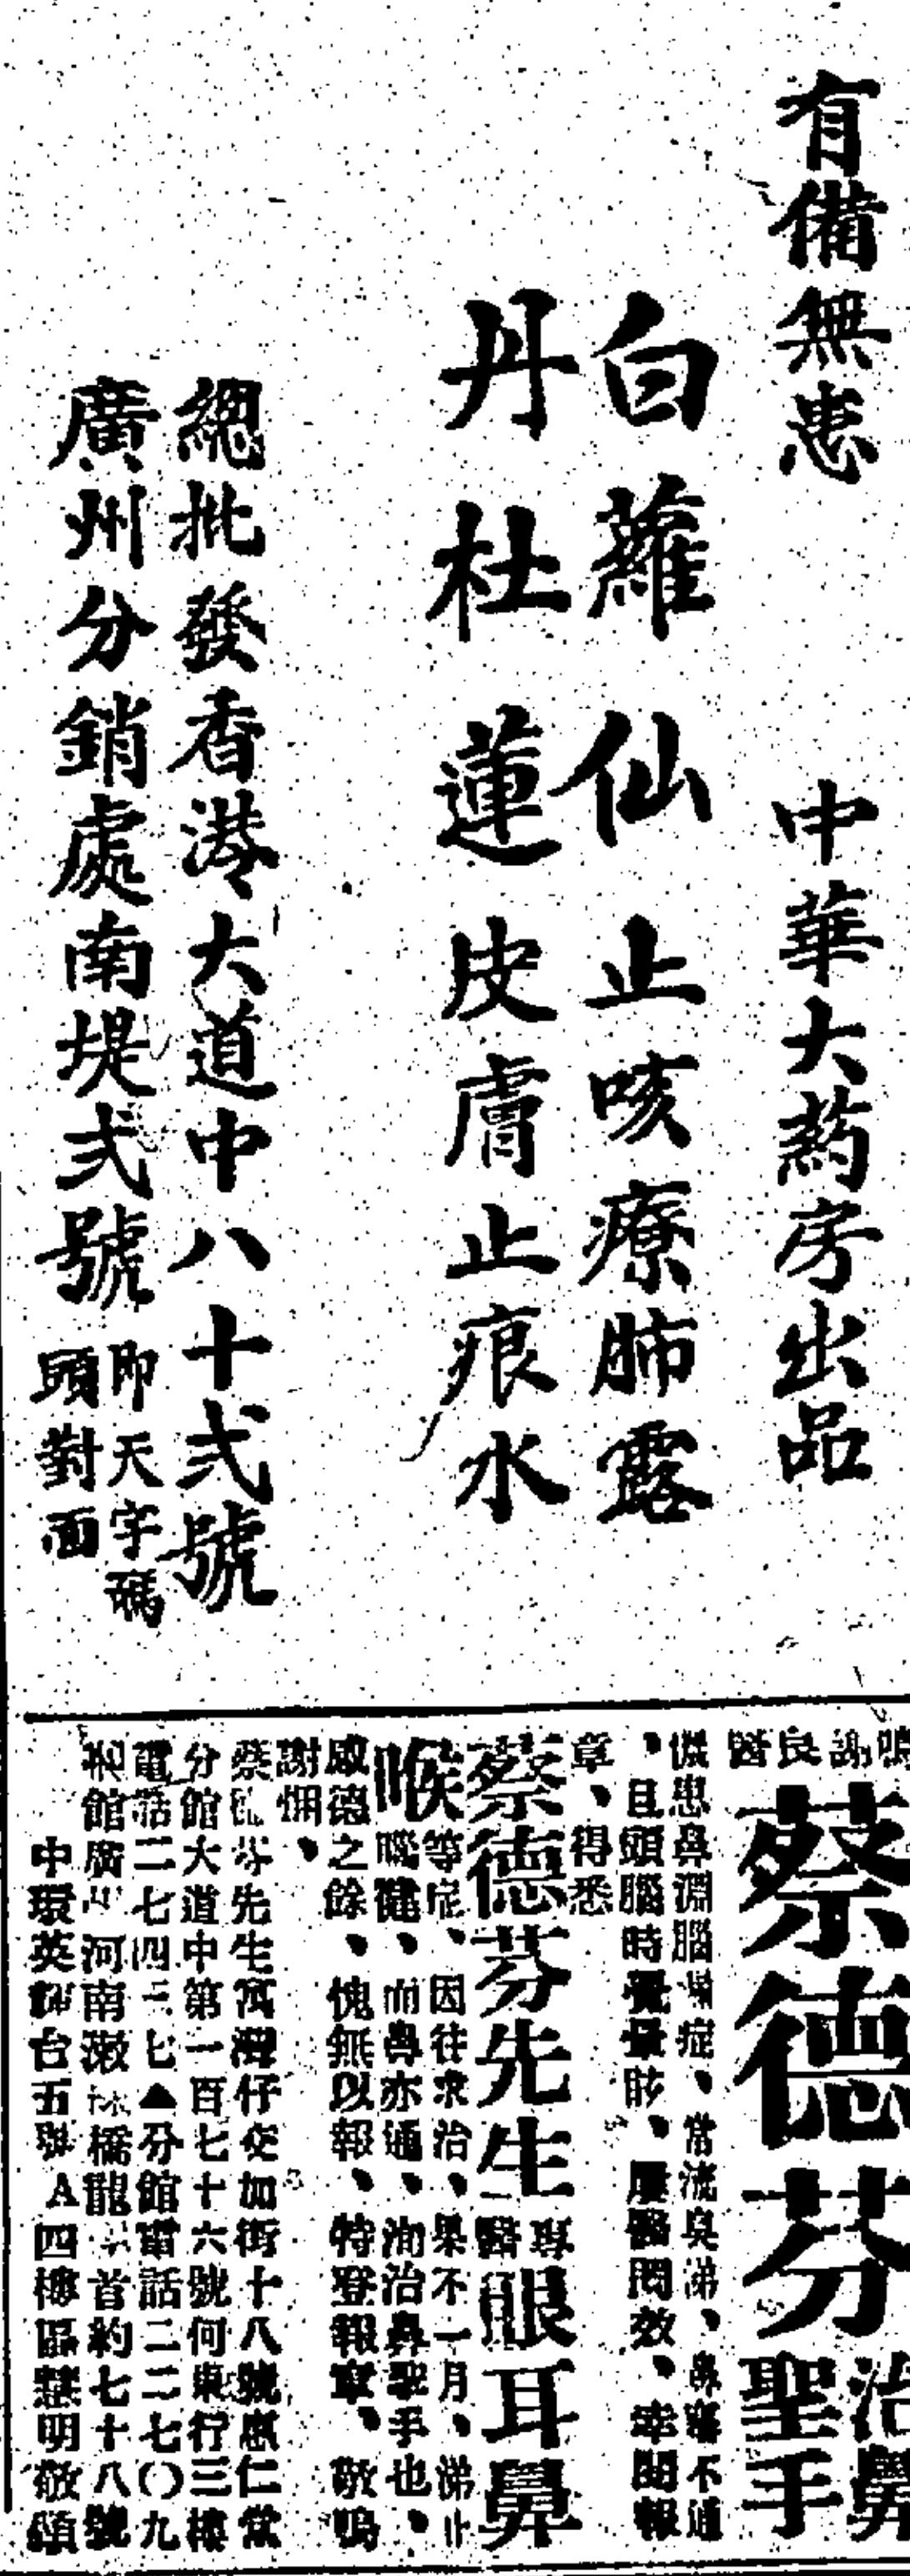 有備無患　中華大葯房出品
白蘿仙止咳療肺露
丹杜蓮皮膚止痕水
總批發香港大道中八十弍號
廣州分銷處南堤弍號
即天字碼
頭對面
鳴謝良醫
蔡德芬
治鼻
聖手
僕患鼻淵腦症、常流臭涕、鼻塞不通
、且頭腦時覺暈、屢醫罔效、幸閱報
章、得悉
蔡德芬先生專醫眼耳鼻
喉等症、因往求治、果不一月、涕止
腦健、而鼻亦通、洵治鼻聖手也、
感德之餘、愧無以報、特登報章、敬鳴
謝悃、
蔡德芬先生寓灣仔交加街十八號惠仁堂
分館大道中第一百七十六號何東行三樓
電話二七四三七▲分館電話二二七〇九
館廣州河南漱珠橋龍首約七十八號
中環英輝台五號A四樓區慧明敬頌